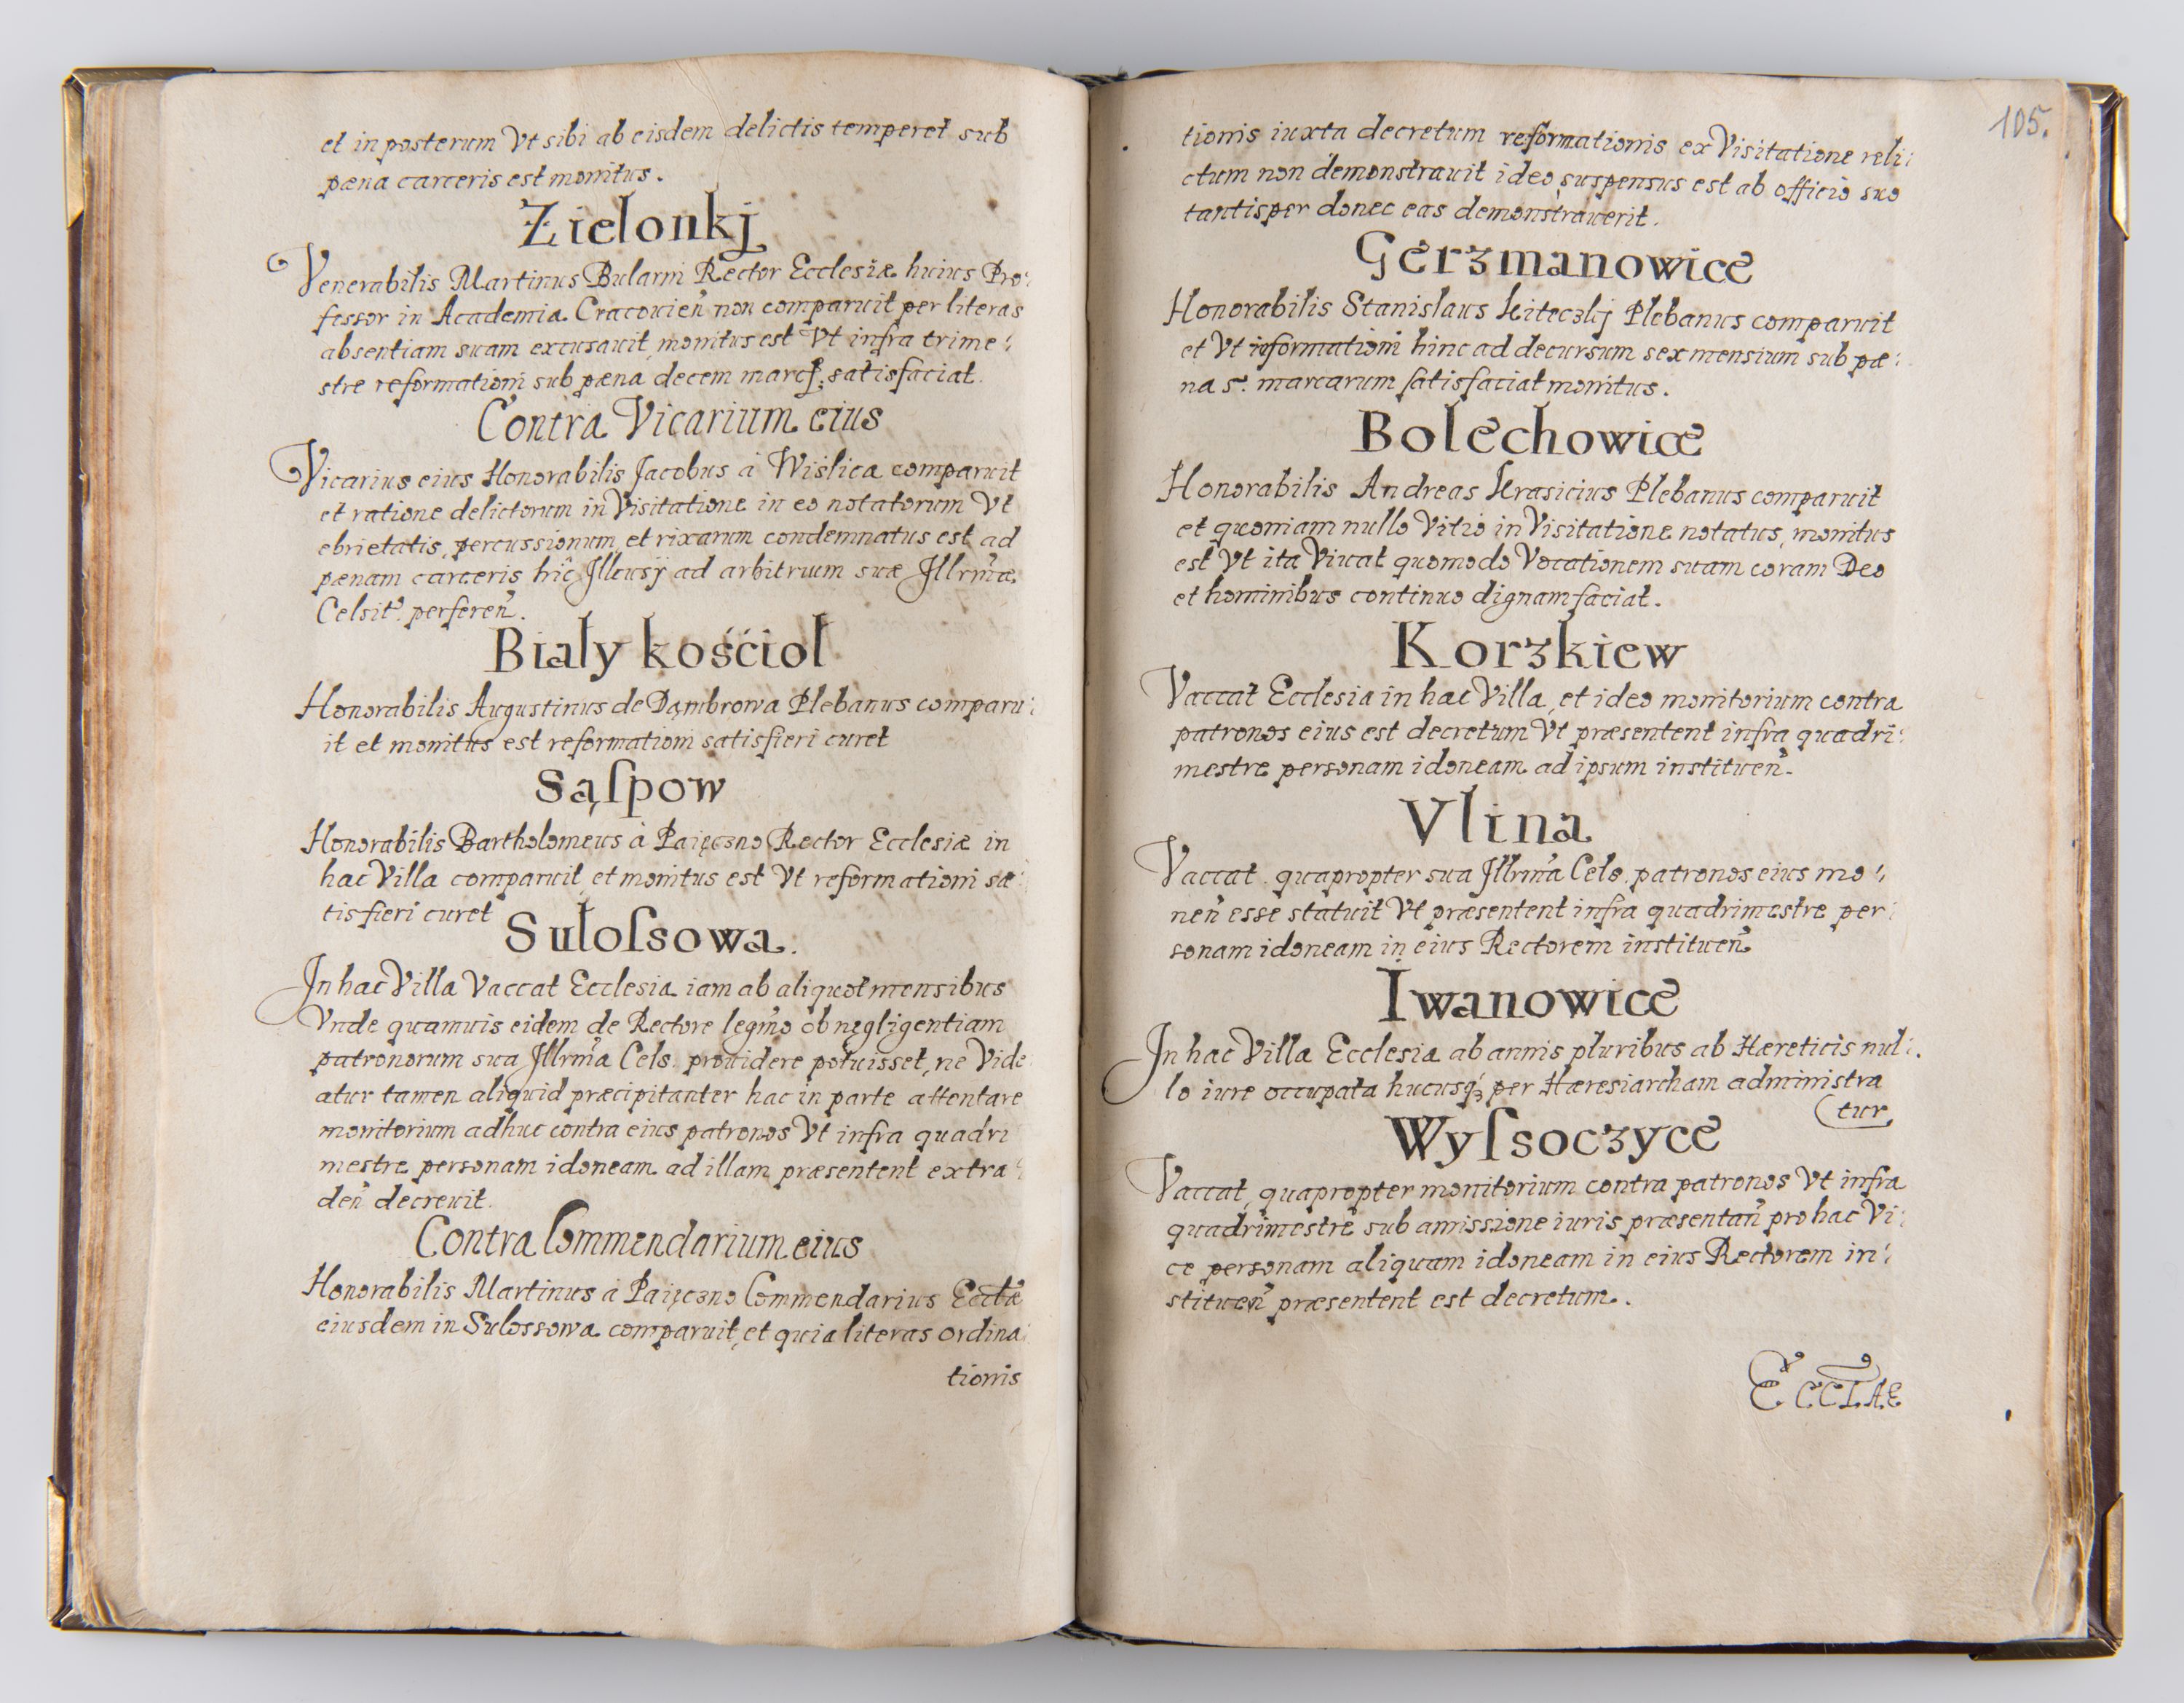 et in posterum Vt sibi ab eisdem delictis temperet sub
pæna carceris est monitus.
Zielonkj
Venerabilis Martinus Bularni Rector Ecclesiæ huius Pro:
fessor in Academia Cracouien̄ non comparuit per literas
absentiam suam excusauit, monitus est Vt infra trime:
stre reformationi sub pæna decem marcꝭ: satisfaciat.
Contra Vicarium eius
Vicarius eius Honorabilis Jacobus à Wiślica comparuit
et ratione delictorum in Visitatione in eo notatorum Vt
ebrietatis, percussionum et rixarum condemnatus est ad
pænam carceris hîc Illcusÿ ad arbitrium suæ Illrmæ
Celsit: perferen̄.
Bialy kośćioł
Honorabilis Augustinus de Dąmbrowa Plebanus comparu:
it et monitus est reformationi satisfieri curet
Sąſpow
Honorabilis Bartholomeus à Paięczno Rector Ecclesiæ in
hac Villa comparuit, et monitus est Vt reformationi sa:
tisfieri curet
Sułoſsowa.
In hac Villa Vaccat Ecclesia iam ab aliquot mensibus
Vnde quamuis eidem de Rectore legmo ob negligentiam
patronorum sua Illrma Cels. prouidere potuisset, ne Vide
atur tamen aliquid præcipitanter hac in parte attentare
monitorium adhuc contra eius patronos Vt infra quadri
mestre personam idoneam ad illam præsentent extra:
den̄ decreuit.
Contra Commendarium eius
Honorabilis Martinus à Paięczno Commendarius Ecclæ
eiusdem in Sulossowa comparuit, et quia literas ordina:
tionis
105.
tionis iuxta decretum reformationis ex Visitatione reli:
ctum non demonstrauit ideo suspensus est ab officio suo
tantisper donec eas demonstrauerit.
Gerzmanowice
Honorabilis Stanislaus Kiteczkj Plebanus comparuit
et Vt reformationi hinc ad decursum sex mensium sub pæ:
na 5. marcarum satisfaciat monitus.
Bolechowice
Honorabilis Andreas Krasicius Plebanus comparuit
et quoniam nullo Vitio in Visitatione notatus, monitus
est Vt ita Viuat quomodo Vocationem suam coram Deo
et hominibus continuo dignam faciat.
Korzkiew
Vaccat Ecclesia in hac Villa, et ideo monitorium contra
patronos eius est decretum Vt præsentent infra quadri:
mestre personam idoneam ad ipsum instituen̄.
Vlina
Vaccat. quapropter sua Illrma Cels. patronos eius mo:
nen̄ esse statuit Vt præsentent infra quadrimestre per:
sonam idoneam in eius Rectorem instituen̄
Iwanowice
In hac Villa Ecclesia ab annis pluribus ab Hæreticis nul:
lo iure occupata hucusqꝫ per Hæresiarcham administra
tur
Wyſsoczyce
Vaccat, quapropter monitorium contra patronos Vt infra
quadrimestre sub amissione iuris præsentan̄ pro hac Vi:
ce personam aliquam idoneam in eius Rectorem in:
stituen̄ præsentent est decretum.
Eccłae